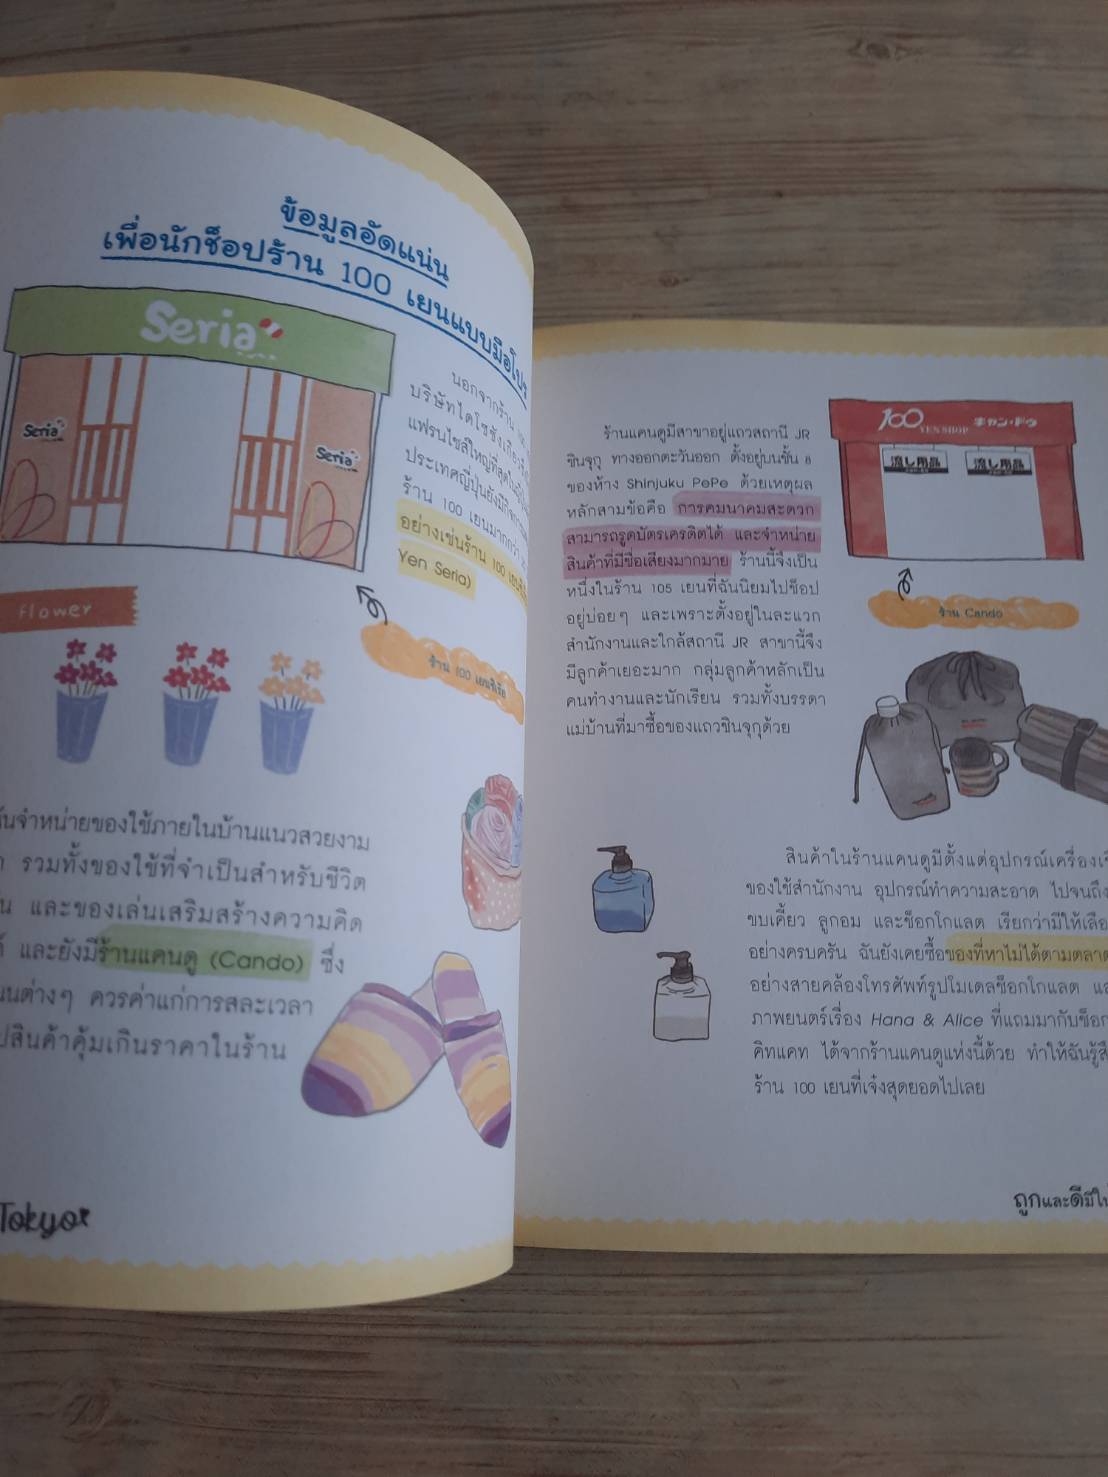 ข้อมูลอัดแน่น
เพื่อนักช็อปร้าน 100 เยนแบบมือโปร
Seria
Seria
Seria
นอกจากร้าน 100
บริษัทไดโซซังเกียว
แฟรนไชส์ใหญ่ที่สุดในญี่ปุ่น
ประเทศญี่ปุ่นยังมีกิจการ
ร้าน 100 เยนมากกว่า
อย่างเช่นร้าน 100 เยน
Yen Seria)
ร้าน 100 เยนซีเรีย
flower
จำหน่ายของใช้ภายในบ้านแนวสวยงาม
รวมทั้งของใช้ที่จำเป็นสำหรับชีวิต
และของเล่นเสริมสร้างความคิด
และยังมีร้านแคนดู (Cando) ซึ่ง
ต่างๆ ควรค่าแก่การสละเวลา
สินค้าคุ้มเกินราคาในร้าน
Tokyo
ร้านแคนดูมีสาขาอยู่แถวสถานี JR
ชินจุกุ ทางออกตะวันออก ตั้งอยู่บนชั้น 8
ของห้าง Shinjuku PePe ด้วยเหตุผล
หลักสามข้อคือ การคมนาคมสะดวก
สามารถรูดบัตรเครดิตได้ และจำหน่าย
สินค้าที่มีชื่อเสียงมากมาย ร้านนี้จึงเป็น
หนึ่งในร้าน 105 เยนที่ฉันนิยมไปช็อป
อยู่บ่อยๆ และเพราะตั้งอยู่ในละแวก
สำนักงานและใกล้สถานี JR สาขานี้จึง
มีลูกค้าเยอะมาก กลุ่มลูกค้าหลักเป็น
คนทำงานและนักเรียน รวมทั้งบรรดา
แม่บ้านที่มาซื้อของแถวชินจุกุด้วย
100 YEN SHOP キャン・ドゥ
流し用品 流し用品
ร้าน Cando
สินค้าในร้านแคนดูมีตั้งแต่อุปกรณ์เครื่อง
ของใช้สำนักงาน อุปกรณ์ทำความสะอาด ไปจนถึง
ขบเคี้ยว ลูกอม และช็อกโกแลต เรียกว่ามีให้เลือ
อย่างครบครัน ฉันยังเคยซื้อของที่หาไม่ได้ตามตลาด
อย่างสายคล้องโทรศัพท์รูปโมเดลช็อกโกแลต
ภาพยนตร์เรื่อง Hana & Alice ที่แถมมากับช็อก
คิทแคท ได้จากร้านแคนดูแห่งนี้ด้วย ทำให้ฉันรู้สึ
ร้าน 100 เยนที่เจ๋งสุดยอดไปเลย
ถูกและดีมีใน